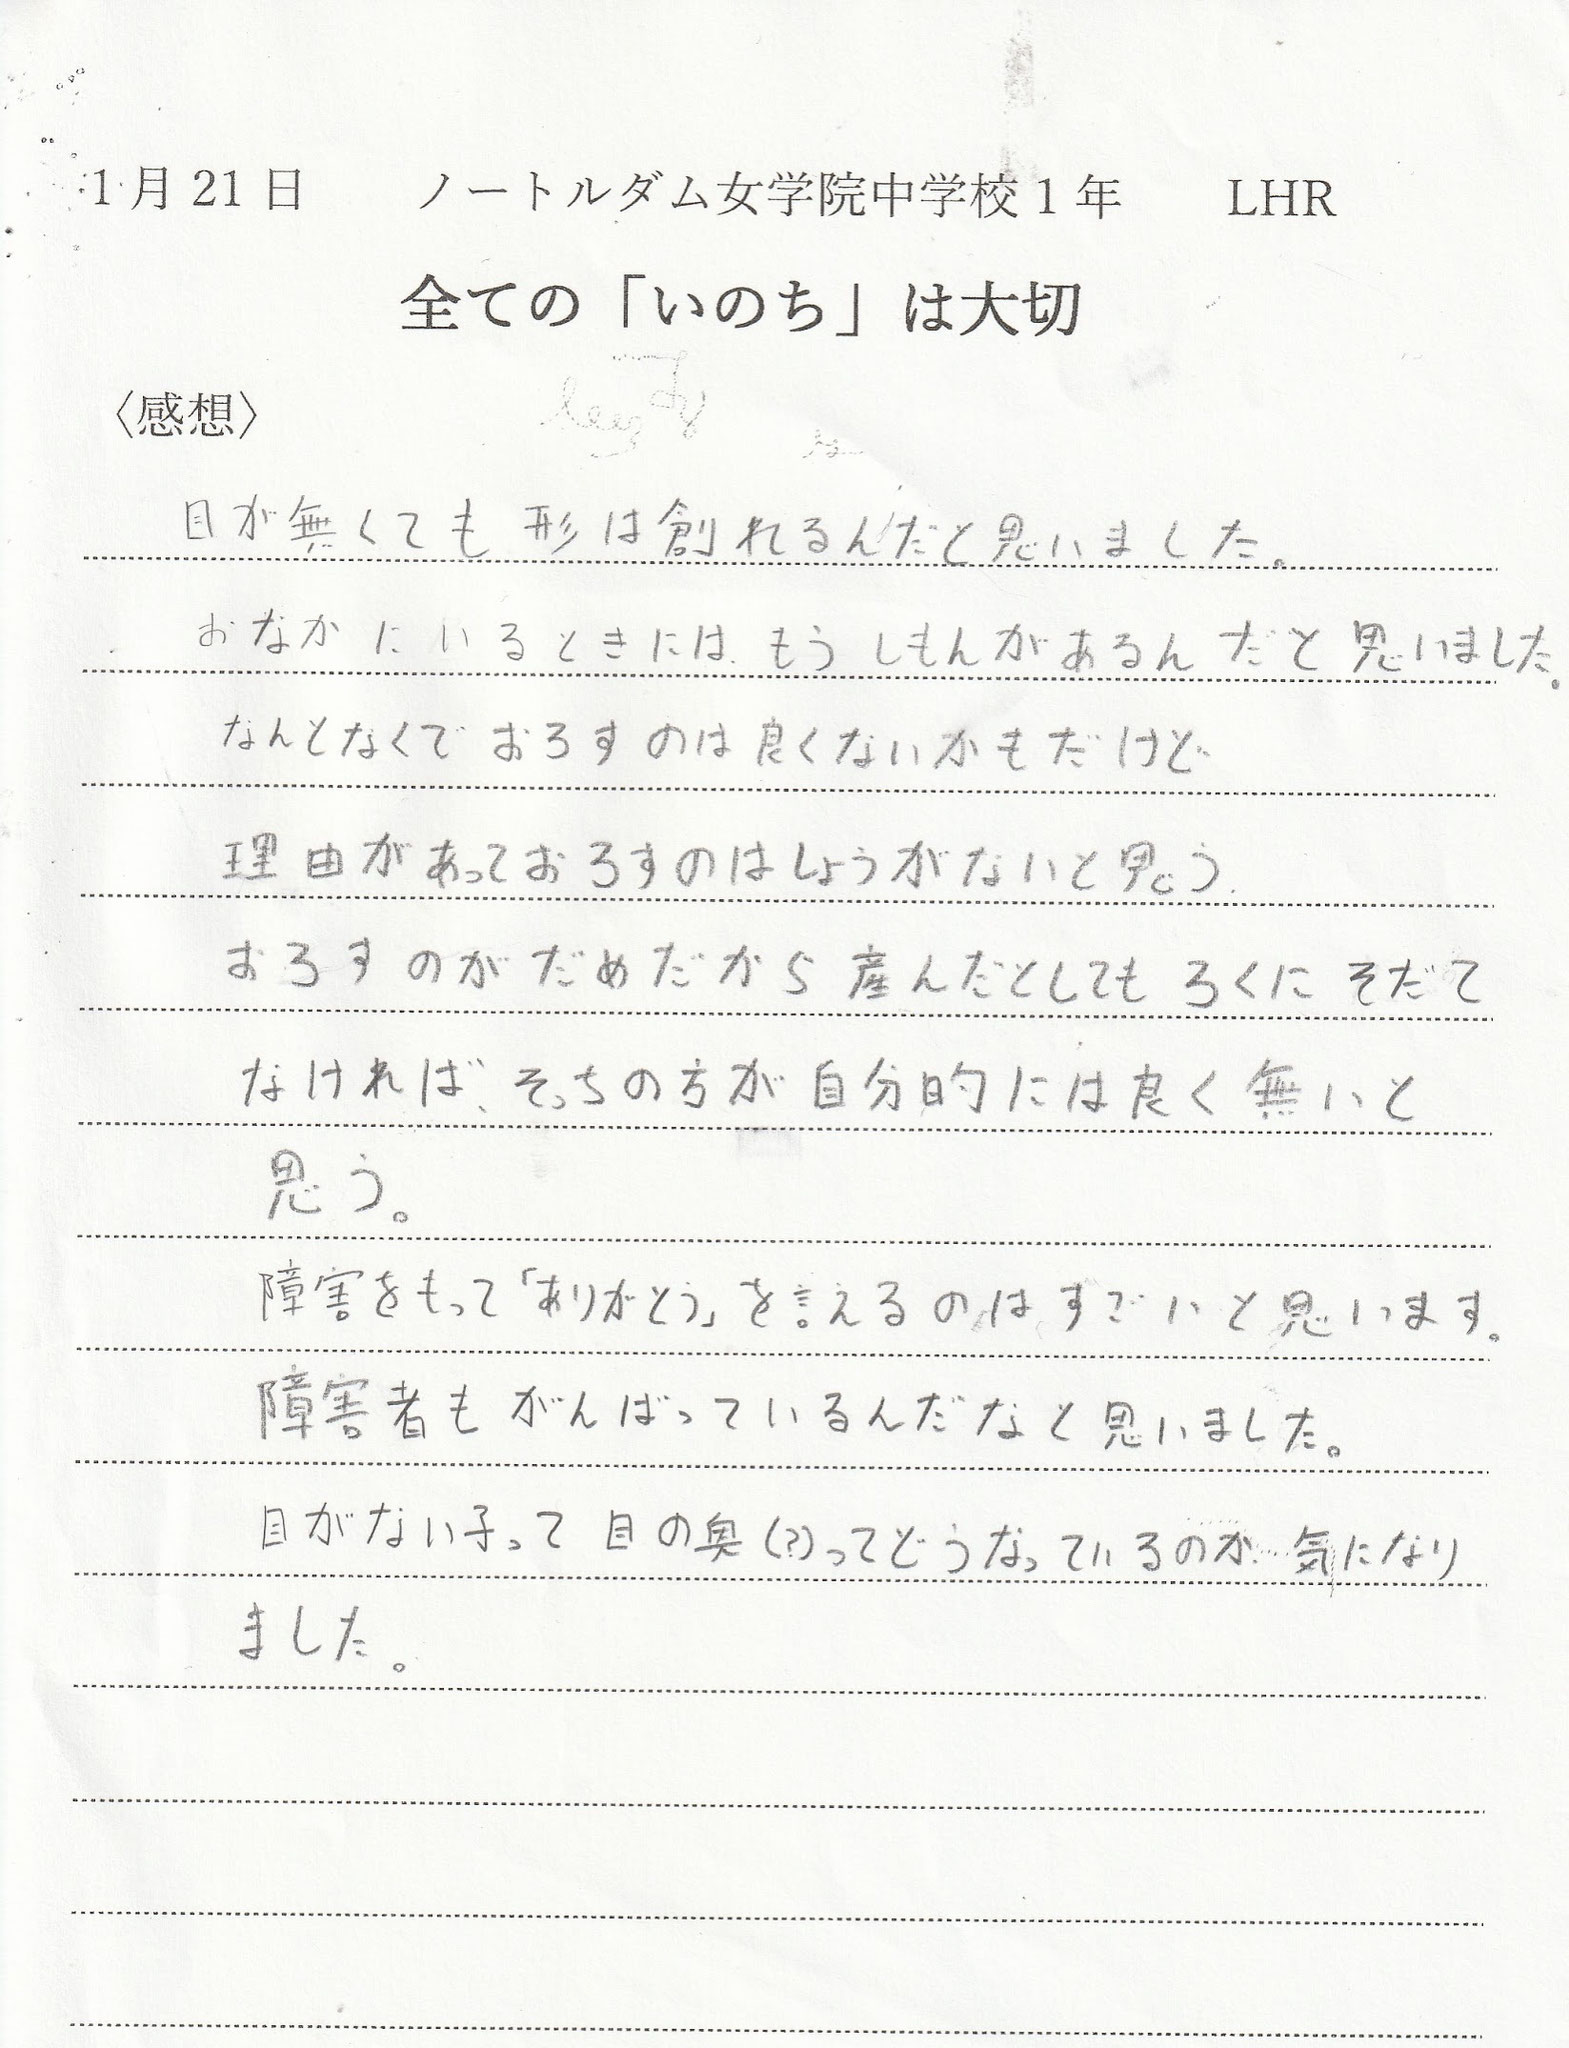 1月21日 ノートルダム女学院中学校1年 LHR
全ての「いのち」は大切
〈感想〉
目が無くても形は創れるんだと思いました。
おなかにいるときには、もうしもんがあるんだと思いました。
なんとなくでおろすのは良くないかもだけど
理由があっておろすのはしょうがないと思う。
おろすのがだめだから産んだとしてもろくにそだて
なければ、そっちの方が自分的には良く無いと
思う。
障害をもって「ありがとう」を言えるのはすごいと思います。
障害者もがんばっているんだなと思いました。
目がない子って目の奥(?)ってどうなっているのか気になり
ました。